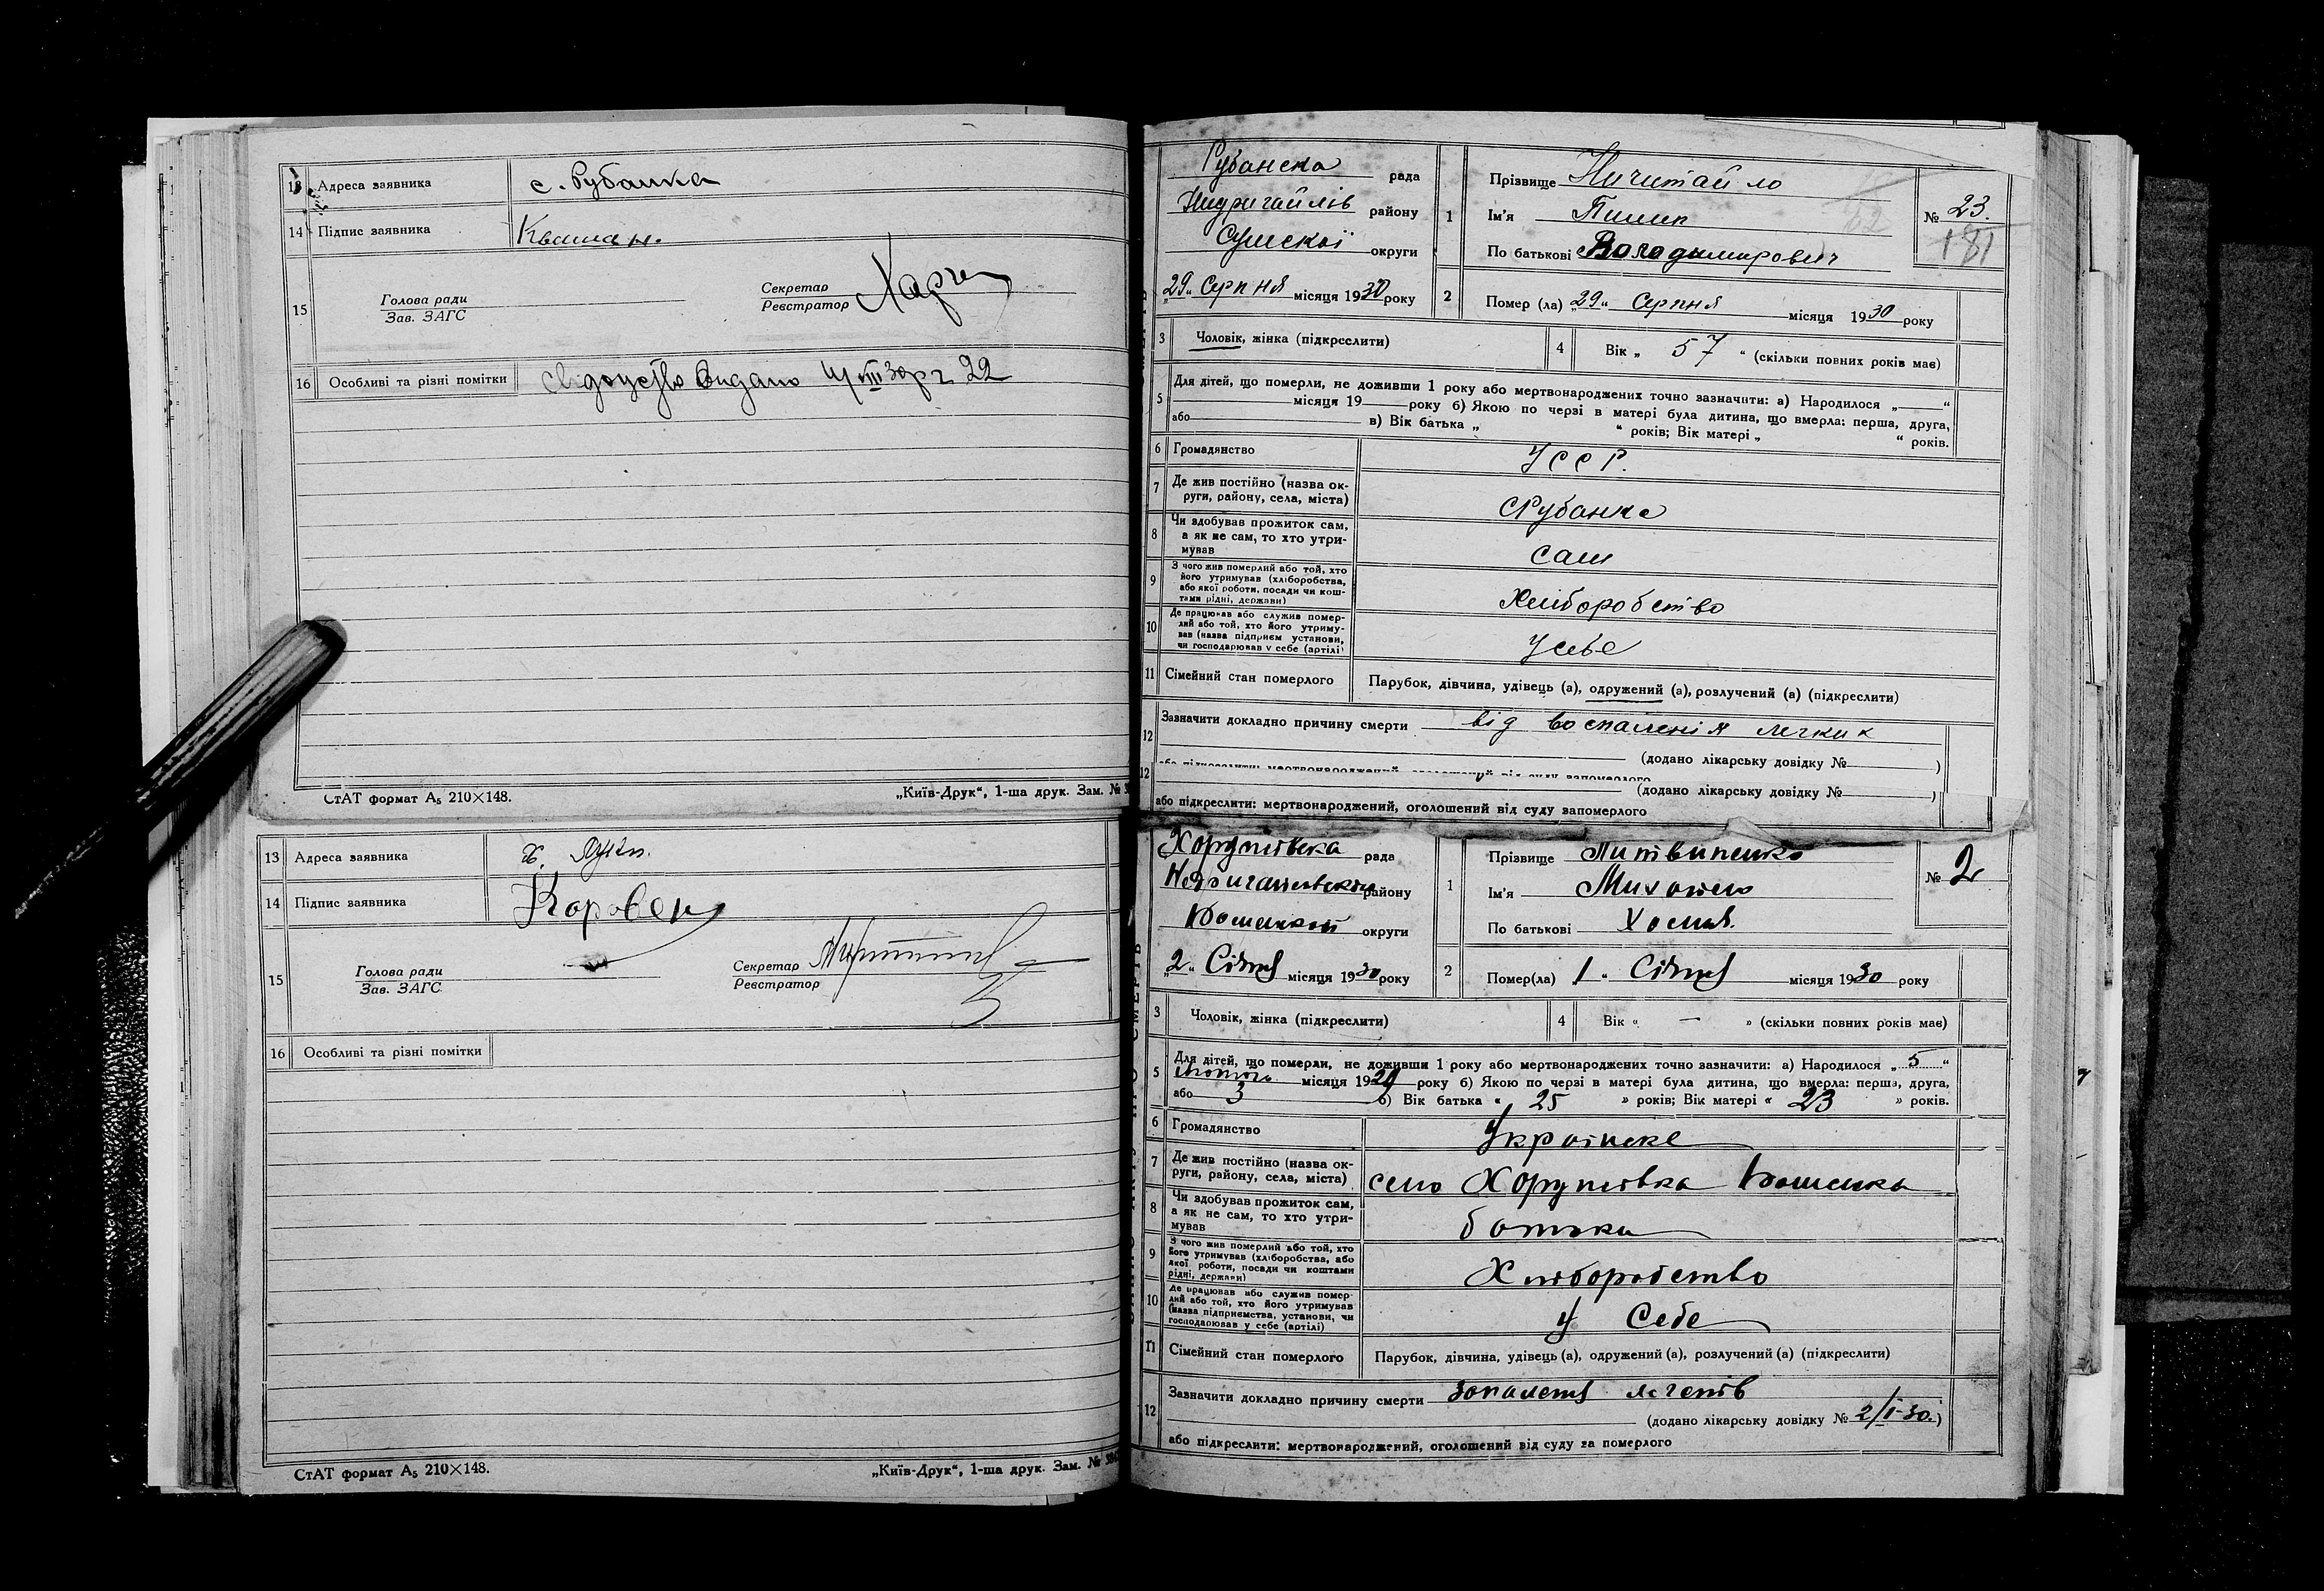 13 Адреса заявника с. Рубанка
14 Підпис заявника Квашан.
15 Голова ради
Зав. ЗАГС
Секретар
Реєстратор
16 Особливі та різні помітки свідоцтво видано 22
СтАТ формат А₅ 210×148. „Київ-Друк“, 1-ша друк. Зам. №
13 Адреса заявника х.
14 Підпис заявника
15 Голова ради
Зав. ЗАГС
Секретар
Реєстратор
16 Особливі та різні помітки
СтАТ формат А₅ 210×148. „Київ-Друк“, 1-ша друк. Зам. №
Рубанска рада
Недригайлів району
Сумскої округи
„29“ Серпня місяця 1930 року
1 Прізвище Ничитайло
Ім'я Пилип
По батькові Володимирович
№ 23.
181
2 Помер (ла) „29“ Серпня місяця 1930 року
3 Чоловік, жінка (підкреслити)
4 Вік „ 57 “ (скільки повних років має)
5 Для дітей, що померли, не доживши 1 року або мертвонароджених точно зазначити: а) Народилося „ “
місяця 19 року б) Якою по черзі в матері була дитина, що вмерла: перша, друга,
або в) Вік батька „ “ років; Вік матері „ “ років.
6 Громадянство УССР.
7 Де жив постійно (назва ок-
руги, району, села, міста) с Рубанка
8 Чи здобував прожиток сам,
а як не сам, то хто утри-
мував сам
9 З чого жив померлий або той, хто
його утримував (хліборобства,
або якої роботи, посади чи кош-
тами рідні, держави) Хліборобство
10 Де працював або служив помер-
лий або той, хто його утриму-
вав (назва підприєм установи,
чи господарював у себе (артілі) У себе
11 Сімейний стан померлого Парубок, дівчина, удівець (а), одружений (а), розлучений (а) (підкреслити)
12 Зазначити докладно причину смерти від воспаленія легких
(додано лікарську довідку № )
12 (додано лікарську довідку № )
або підкреслити: мертвонароджений, оголошений від суду запомерлого
Хоружівська рада
району
округи
„2“ Січня місяця 1930 року
1 Прізвище Литвиненко
Ім'я
По батькові
№ 2
2 Помер(ла) 1 “ Січня місяця 1930 року
3 Чоловік, жінка (підкреслити)
4 Вік « — » (скільки повних років має)
5 Для дітей, що померли, не доживши 1 року або мертвонароджених точно зазначити: а) Народилося „ 5 “
місяця 1929 року б) Якою по черзі в матері була дитина, що вмерла: перша, друга,
або 3 в) Вік батька « 25 » років; Вік матері « 23 » років.
6 Громадянство Українске
7 Де жив постійно (назва ок-
руги, району, села, міста) село Хоружівка
8 Чи здобував прожиток сам,
а як не сам, то хто утри-
мував батьки
9 З чого жив померлий або той, хто
його утримував (хліборобства, або
якої роботи, посади чи коштами
рідні, держави) Хліборобство
10 Де працював або служив помер-
лий або той, хто його утримував
(назва підприємства, установи, чи
господарював у себе (артілі) У Себе
11 Сімейний стан померлого Парубок, дівчина, удівець (а), одружений (а), розлучений (а) (підкреслити)
12 Зазначити докладно причину смерти запалення легенів
(додано лікарську довідку № 2/I-30.)
або підкреслити: мертвонароджений, оголошений від суду за померлого